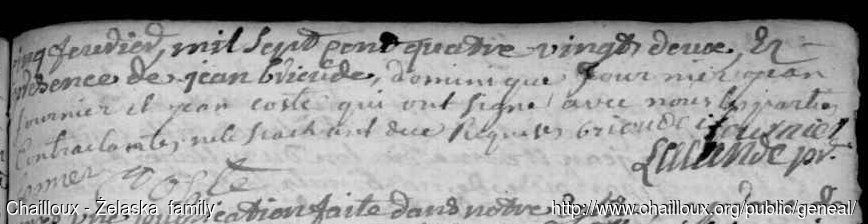 cinq feuvrier, mil sept cent quatre vingts deux, Et
presence de jean brieude, dominique fournier jean
fournier et jean coste qui ont signé avec nous les parties
Contractantes ne le sachant due Requises brieude fournier
Lalande pr.
fournier Coste
publication faite dans notre
Chailloux - Żelaska family
http://www.chailloux.org/public/geneal/